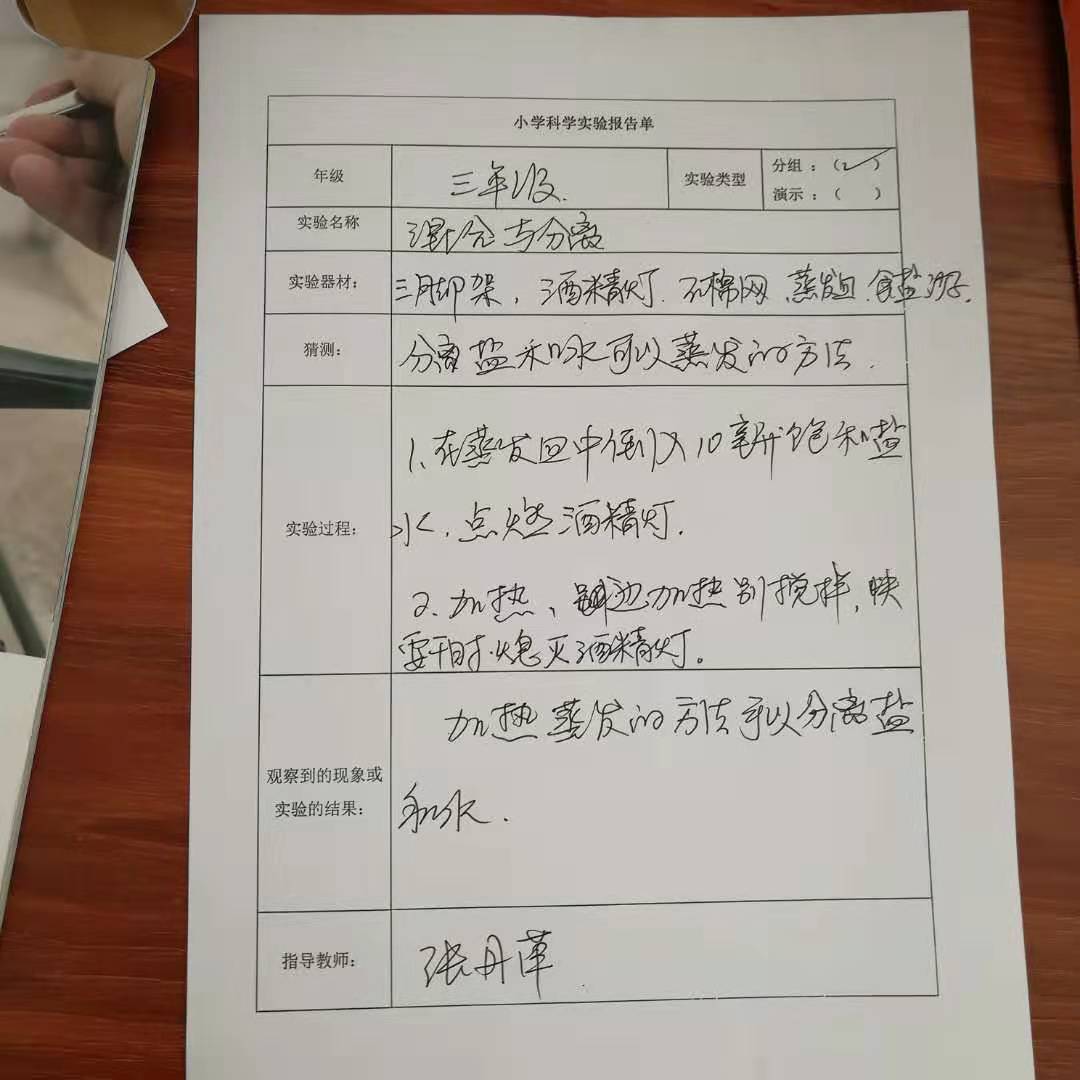 小学科学实验报告单
年级 三年级. 实验类型 分组：（✓）
演示：（ ）
实验名称 混合与分离
实验器材： 三脚架，酒精灯.石棉网.蒸发皿.食盐
猜测： 分离盐和水可以蒸发的方法.
1、在蒸发皿中倒入10毫升饱和盐
实验过程： 水，点燃酒精灯.
2.加热、边加热别搅拌，快
要干时熄灭酒精灯。
加热蒸发的方法可以分离盐
观察到的现象或
实验的结果： 和水.
指导教师： 张丹